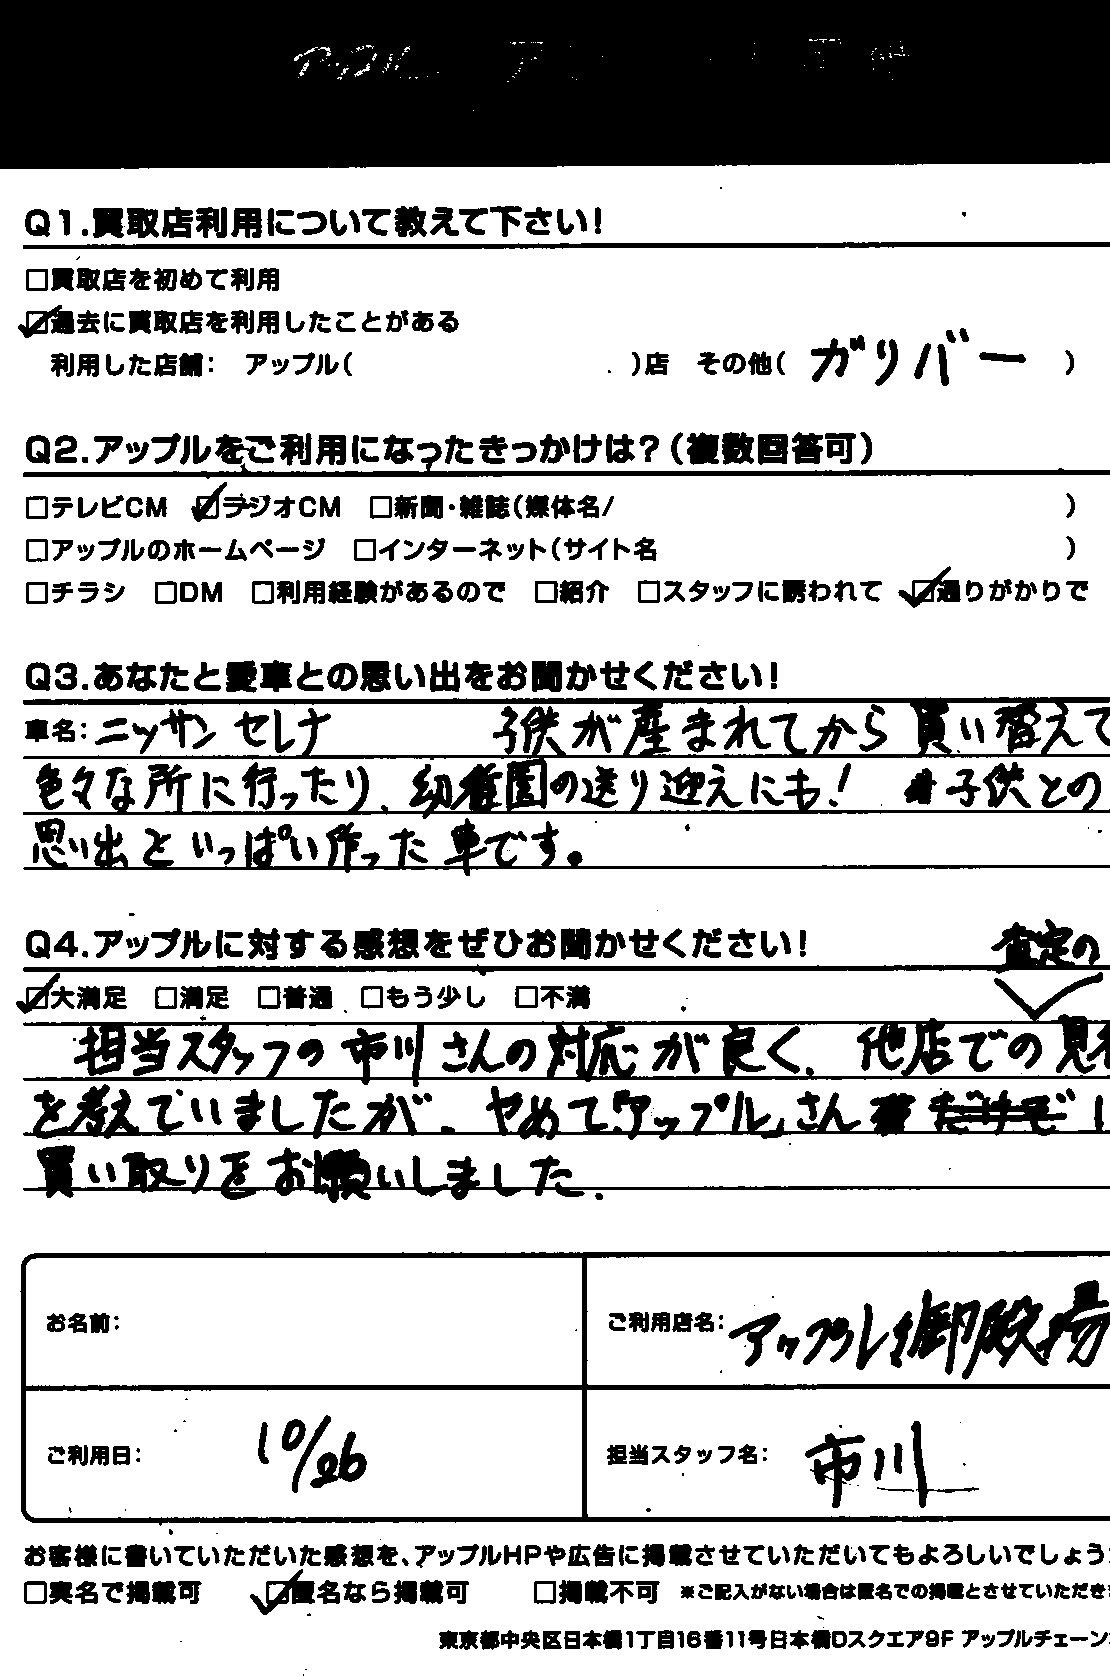 アップル
Q1.買取店利用について教えて下さい!
□買取店を初めて利用
☑過去に買取店を利用したことがある
利用した店舗: アップル( )店 その他( ガリバー )
Q2.アップルをご利用になったきっかけは?(複数回答可)
□テレビCM ☑ラジオCM □新聞・雑誌(媒体名/ )
□アップルのホームページ □インターネット(サイト名 )
□チラシ □DM □利用経験があるので □紹介 □スタッフに誘われて ☑通りがかりで
Q3.あなたと愛車との思い出をお聞かせください!
車名: ニッサン セレナ 子供が産まれてから 買い替えて
色々な所に行ったり、幼稚園の送り迎えにも! 子供との
思い出といっぱい作った車です。
Q4.アップルに対する感想をぜひお聞かせください!
査定の
☑大満足 □満足 □普通 □もう少し □不満
担当スタッフの市川さんの対応が良く、他店での見
を考えていましたが、やめて「アップル」さん
買い取りをお願いしました.
お名前:
ご利用店名: アップル 御殿場
ご利用日: 10/26
担当スタッフ名: 市川
お客様に書いていただいた感想を、アップルHPや広告に掲載させていただいてもよろしいでしょう
□実名で掲載可 ☑匿名なら掲載可 □掲載不可 ※ご記入がない場合は匿名での掲載とさせていただき
東京都中央区日本橋1丁目16番11号日本橋Dスクエア9F アップルチェーン